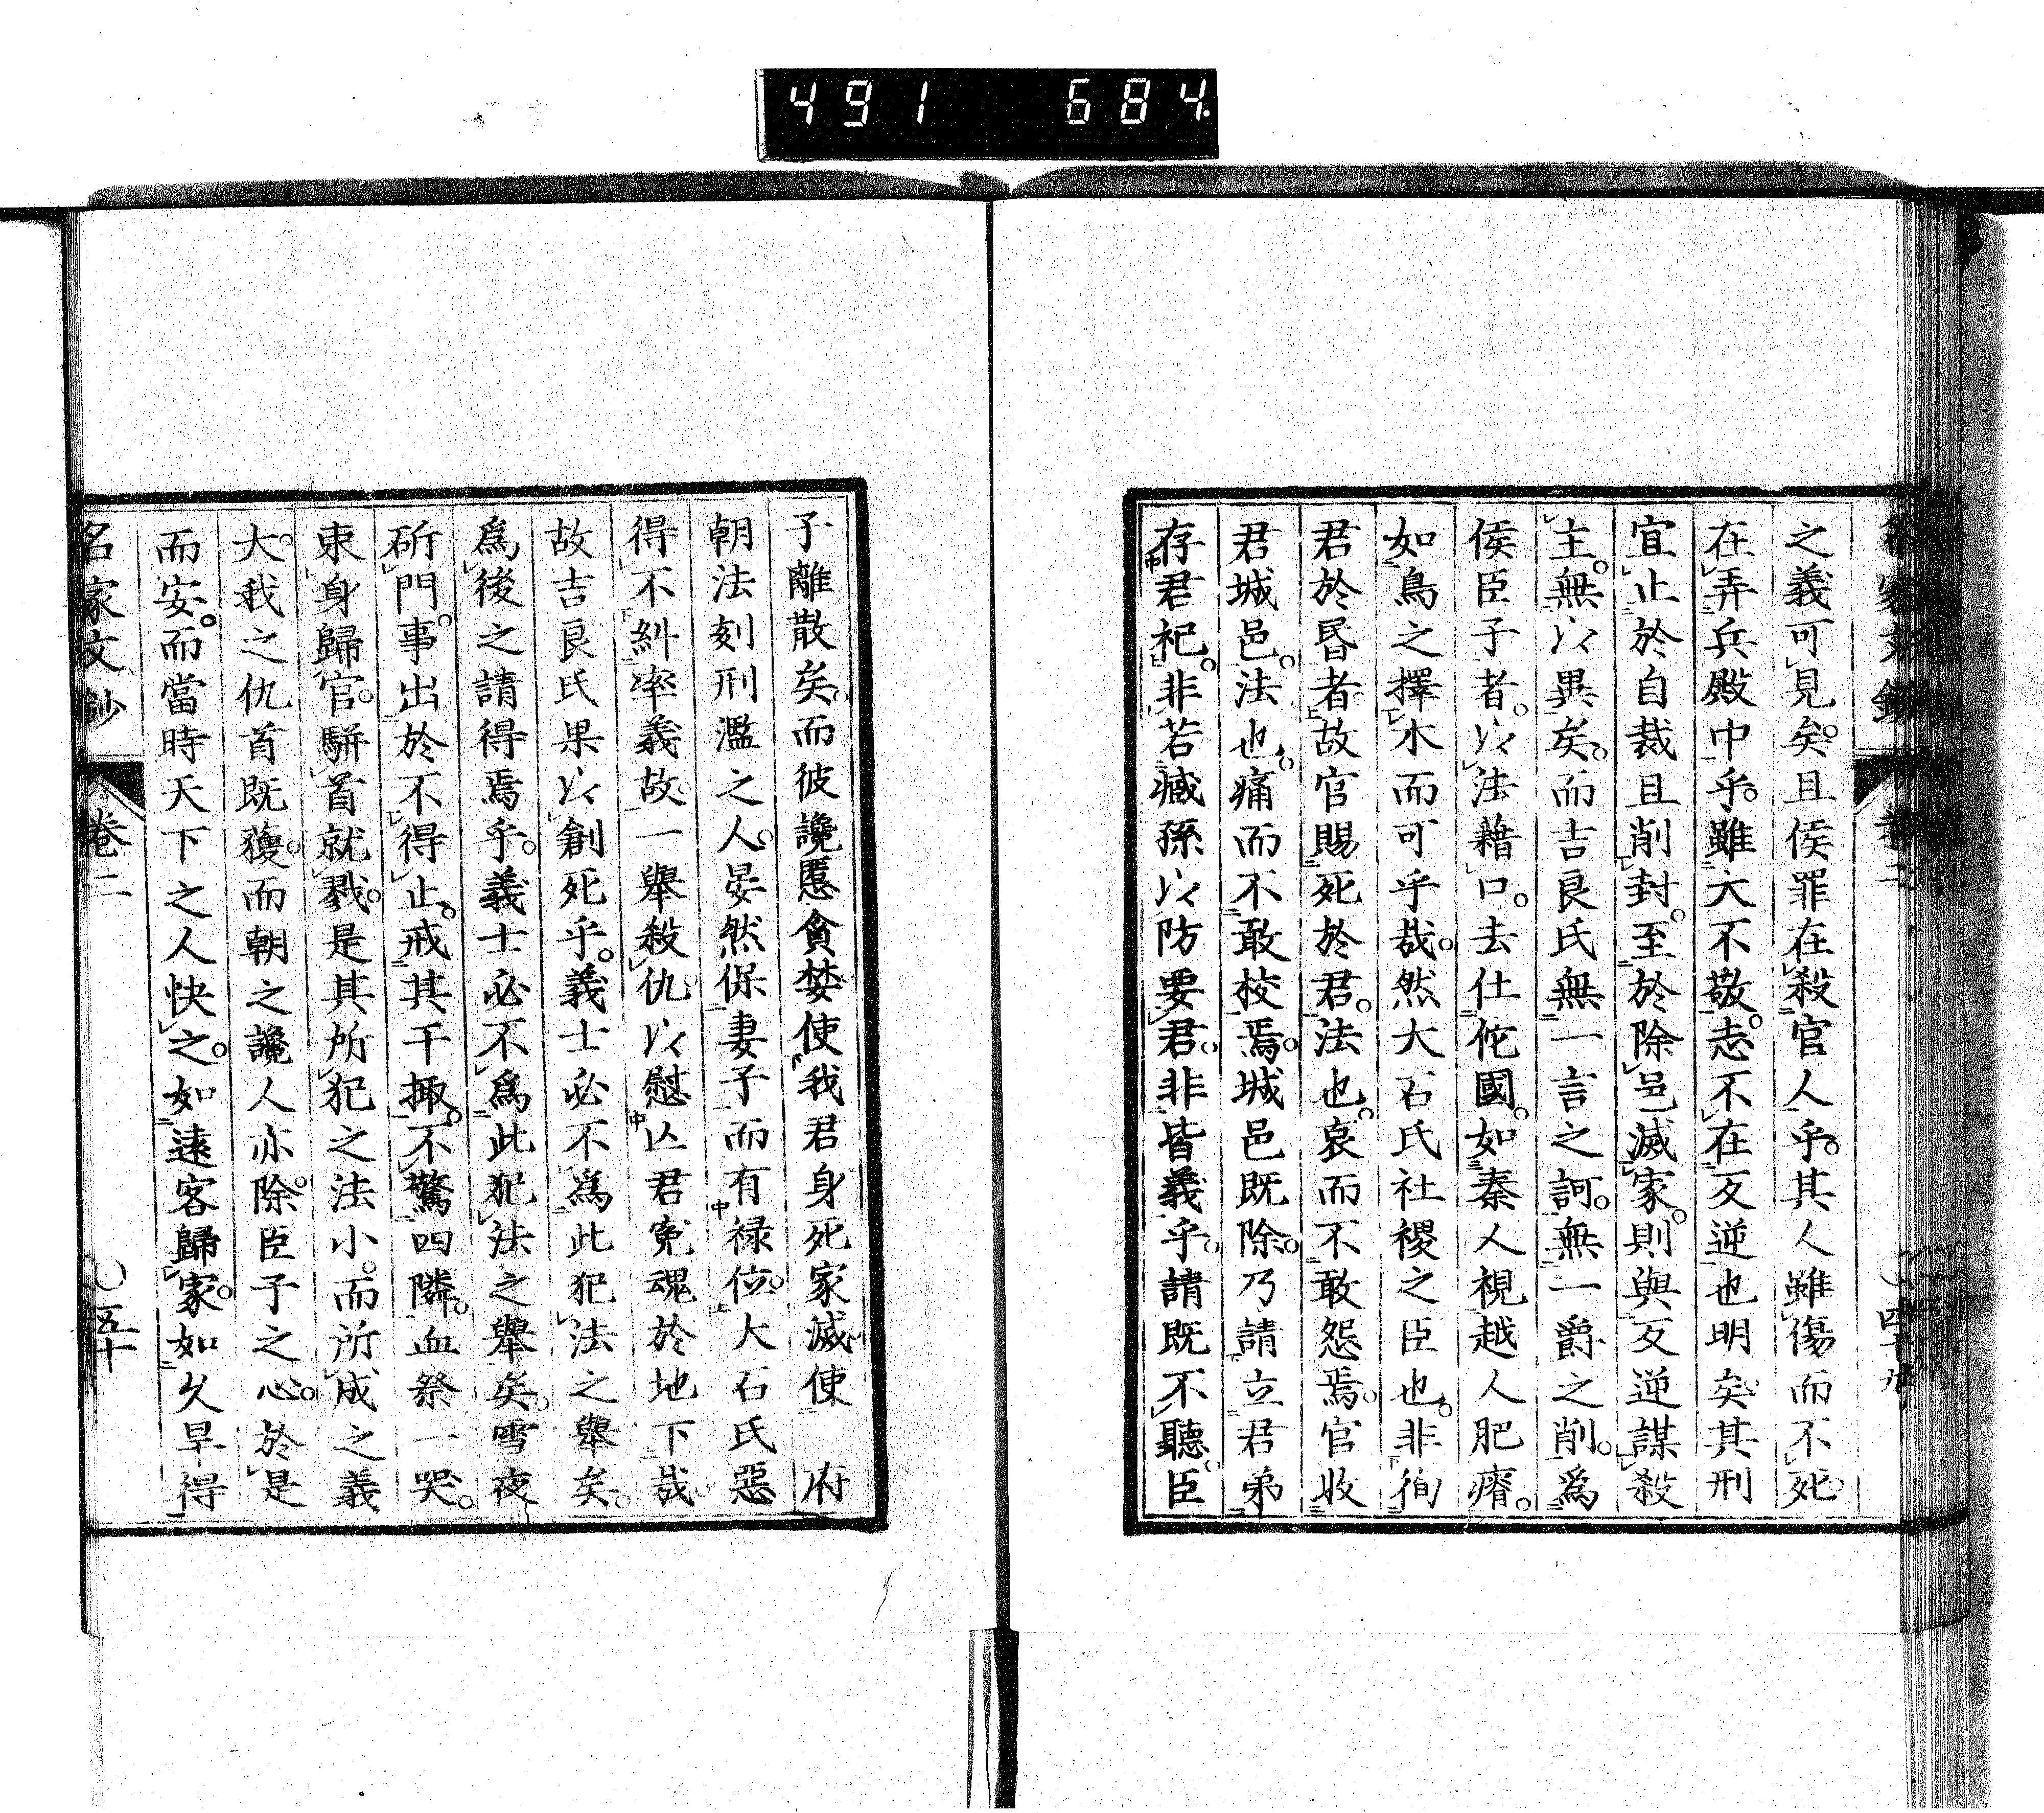 491 684.
之義可見矣。且侯罪在殺官人乎。其人雖傷而不死。
在弄兵殿中乎。雖大不敬。志不在反逆也明矣。其刑
宜止於自裁且削封。至於除邑滅家。則與反逆謀殺
主。無以異矣。而吉良氏無一言之訶。無一爵之削。爲
侯臣子者。以法藉口。去仕佗國。如秦人視越人肥瘠。
如鳥之擇木而可乎哉。然大石氏社稷之臣也。非徇
君於昏者。故官賜死於君。法也。哀而不敢怨焉。官收
君城邑。法也。痛而不敢校焉。城邑既除。乃請立君弟
存君祀。非若臧孫以防要君。非皆義乎。請既不聽。臣
子離散矣。而彼讒慝貪婪使我君身死家滅使 府
朝法刻刑濫之人。晏然保妻子而有祿位。大石氏惡
得不糾率義故。一舉殺仇以慰亾君寃魂於地下哉。
故吉良氏果以創死乎。義士必不爲此犯法之舉矣。
爲後之請得焉乎。義士必不爲此犯法之舉矣。雪夜
斫門。事出於不得止。戒其干掫。不驚四隣。血祭一哭。
束身歸官。駢首就戮。是其所犯之法小。而所成之義
大。我之仇首既獲。而朝之讒人亦除。臣子之心。於是
而安。而當時天下之人快之。如遠客歸家。如久旱得
名家文鈔 卷二 〇五十